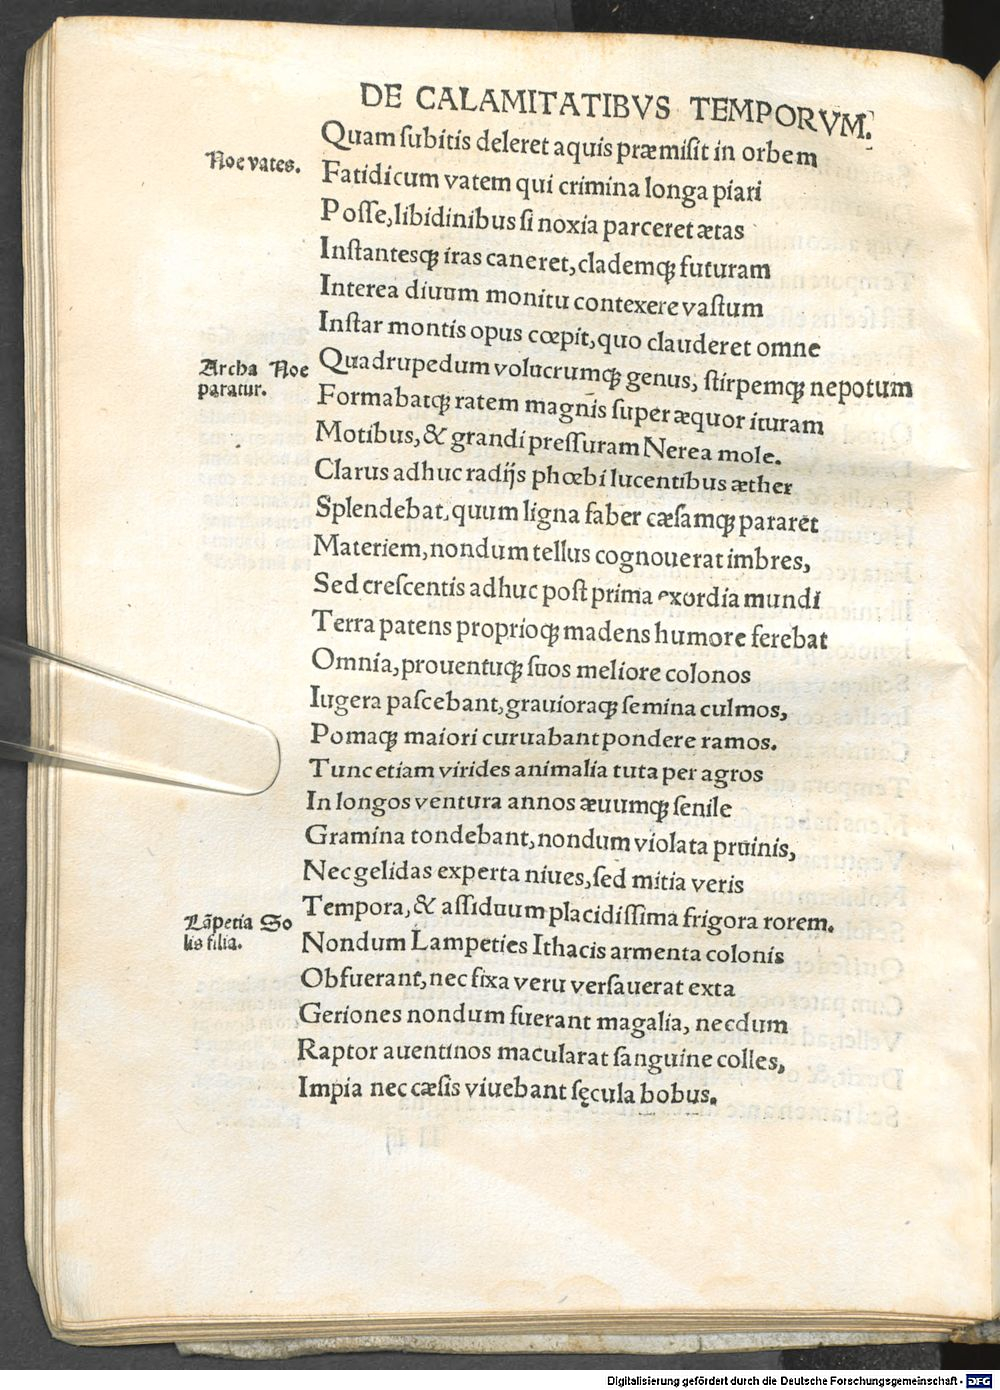 DE CALAMITATIBVS TEMPORVM.
Quam ſubitis deleret aquis præmiſit in orbem
Noe vates.
Fatidicum vatem qui crimina longa piari
Poſſe, libidinibus ſi noxia parceret ætas
Inſtantesqꝫ iras caneret, clademqꝫ futuram
Interea diuum monitu contexere vaſtum
Inſtar montis opus cœpit, quo clauderet omne
Archa Noe
paratur.
Quadrupedum volucrumqꝫ genus, ſtirpemqꝫ nepotum
Formabatqꝫ ratem magnis ſuper æquor ituram
Motibus, & grandi preſſuram Nerea mole.
Clarus adhuc radijs phœbi lucentibus æther
Splendebat, quum ligna faber cæſamqꝫ pararet
Materiem, nondum tellus cognouerat imbres,
Sed creſcentis adhuc poſt prima exordia mundi
Terra patens proprioqꝫ madens humore ferebat
Omnia, prouentuqꝫ ſuos meliore colonos
Iugera paſcebant, grauioraqꝫ ſemina culmos,
Pomaqꝫ maiori curuabant pondere ramos.
Tunc etiam virides animalia tuta per agros
In longos ventura annos æuumqꝫ ſenile
Gramina tondebant, nondum violata pruinis,
Nec gelidas experta niues, ſed mitia veris
Tempora, & aſſiduum placidiſſima frigora rorem.
Lãpetia So
lis filia.
Nondum Lampeties Ithacis armenta colonis
Obfuerant, nec fixa veru verſauerat exta
Geriones nondum fuerant magalia, necdum
Raptor auentinos macularat ſanguine colles,
Impia nec cæſis viuebant ſęcula bobus.
Digitalisierung gefördert durch die Deutsche Forschungsgemeinschaft - DFG